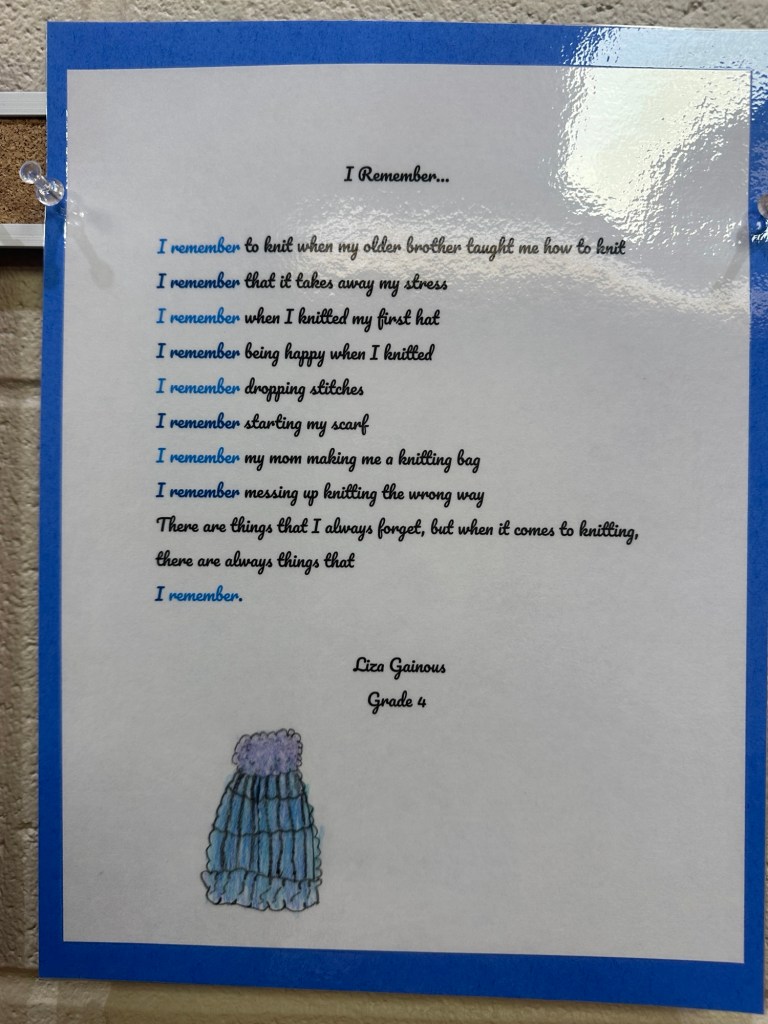 I Remember...
I remember to knit when my older brother taught me how to knit
I remember that it takes away my stress
I remember when I knitted my first hat
I remember being happy when I knitted
I remember dropping stitches
I remember starting my scarf
I remember my mom making me a knitting bag
I remember messing up knitting the wrong way
There are things that I always forget, but when it comes to knitting,
there are always things that
I remember.
Liza Gainous
Grade 4